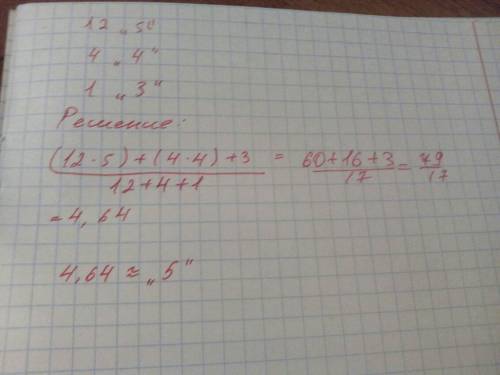 12 „5“
4 „4“
1 „3“
Решение:
(12·5)+(4·4)+3 / 12+4+1 = 60+16+3 / 17 = 79 / 17
=4,64
4,64≈„5“